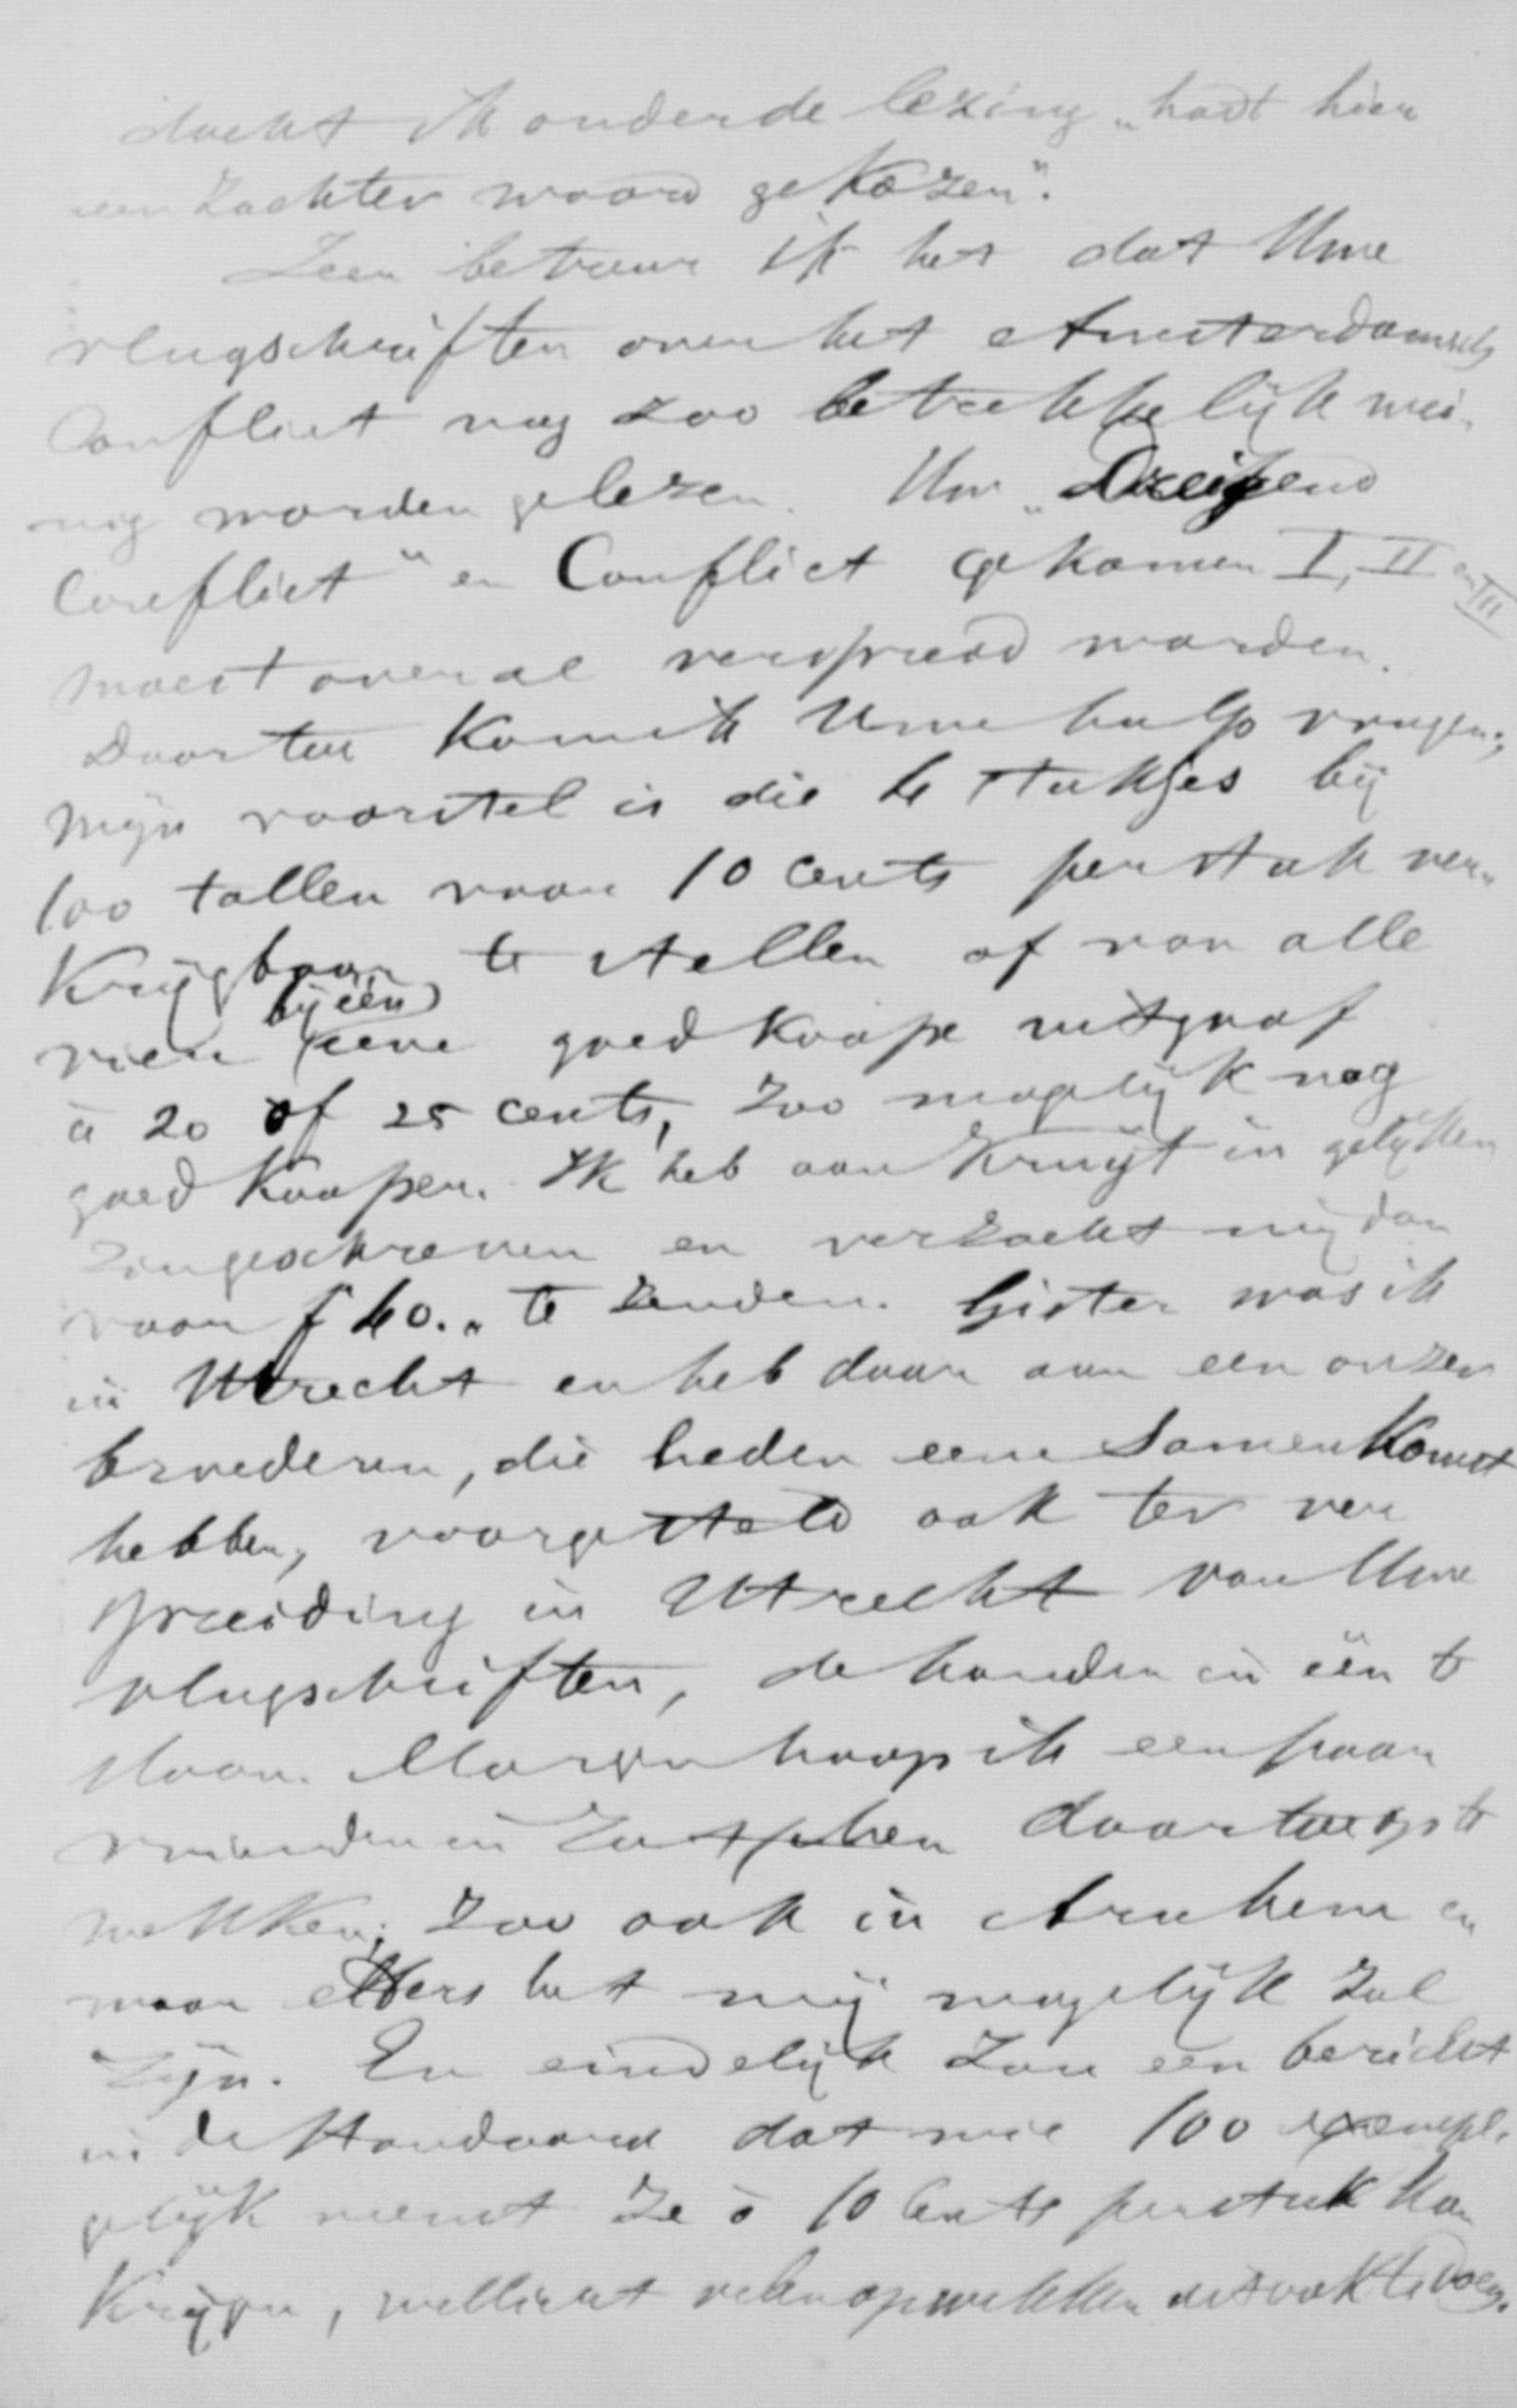 dacht ik onder de lezing „hadt hier
een zachter woord gekozen".
Zeer betreur ik het dat Uwe
vlugschriften over het Amsterdamsch
Conflict nog zoo betrekkelijk wei-
nig worden gelezen. Uw „Dreigend
Conflict" en Conflict gekomen I, II en III
moest overal verspreid worden.
Daartoe kom ik Uwe hulp vragen;
mijn voorstel is die 4 stukjes bij
100 tallen voor 10 cents per stuk ver-
krijgbaar te stellen of van alle
vier (bijeen) eene goedkoope uitgaaf
à 20 of 25 cents, zoo mogelijk nog
goedkooper. Ik heb aan Kruijt in gelijken
zin geschreven en verzocht mij dan
voor f 40.„ te zenden. Gister was ik
in Utrecht en heb daar aan een onzer
broederen, die heden eene Samenkomst
hebben, voorgesteld ook ter ver
spreiding in Utrecht van Uwe
vlugschriften, de handen in één te
slaan. Morgen hoop ik een paar
vrienden in Zutphen daartoe op te
wekken; zoo ook in Arnhem en
waar elders het mij mogelijk zal
zijn. En eindelijk zou een bericht
in de Standaard dat wie 100 exempl.
gelijk neemt ze à 10 Cents per stuk kan
krijgen, wellicht velen opwekken dit ook te doen.